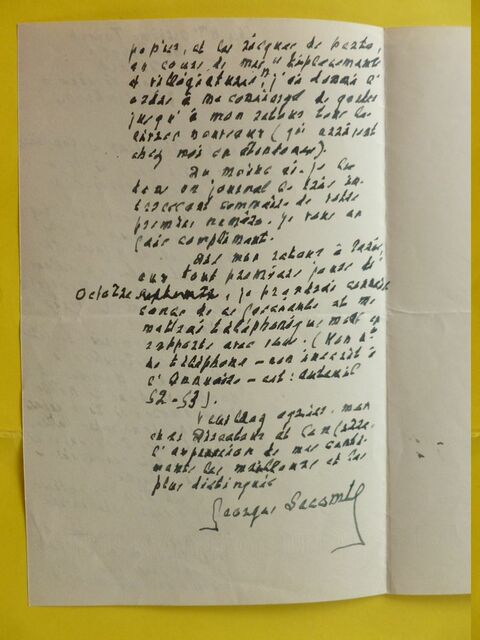 papier, et les risques de perte,
au cours de mes "déplacements
et villégiatures", j'ai donné l'
ordre à ma concierge de garder
jusqu'à mon retour tous les
livres nouveaux (qui arrivent
chez moi en abondance).
Du moins ai-je lu
dans un journal le très in-
téressant sommaire de votre
premier numéro. Je vous en
fais compliment.
Dès mon retour à Paris,
aux tout premiers jours d'
Octobre septembre, je prendrai connais-
sance de ce Gocriants et me
mettrai téléphoniquement en
rapports avec vous. (Mon n°
de téléphone - non inscrit à
l'Annuaire - est : Auteuil
52-53).
Veuillez agréer, mon
cher Directeur et Confrère,
l'expression de mes senti-
ments les meilleurs et les
plus distingués
Georges